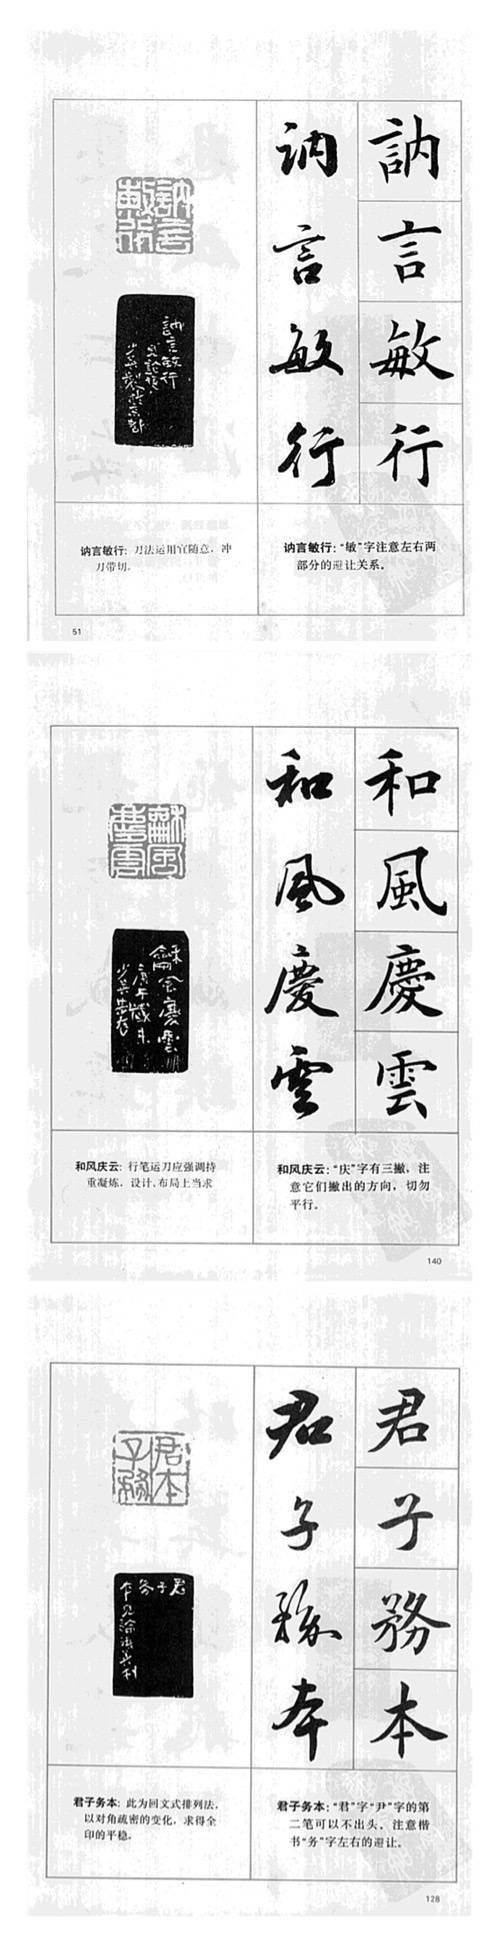 訥言敏行
訥言敏行
訥言敏行
訥言敏行
讷言敏行：“敏”字注意左右两
部分的避让关系。
讷言敏行：刀法运用宜随意，冲
刀带切。
51
和風慶雲
和風慶雲
龢風慶雲
和风庆云：“庆”字有三撇，注
意它们撇出的方向，切勿
平行。
和风庆云：行笔运刀应强调持
重凝炼，设计、布局上当求
140
君子務本
君子務本
君子務本
君子务本：“君”字“尹”字的第
二笔可以不出头。注意楷
书“务”字左右的避让。
君子务本：此为回文式排列法，
以对角疏密的变化，求得全
印的平稳。
128